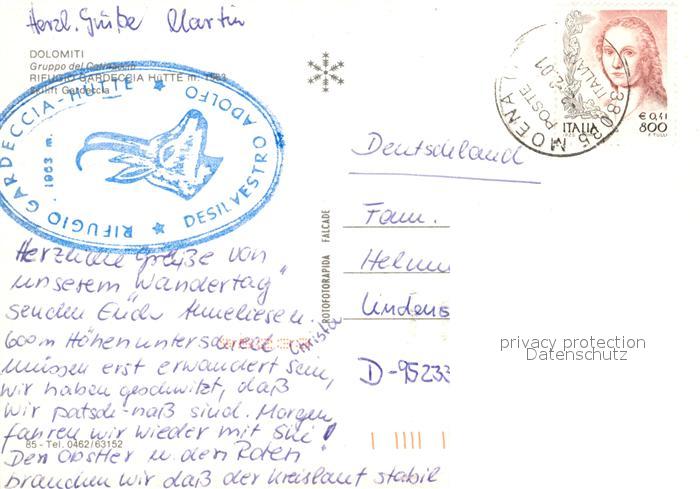 Herzl. Grüße Martin
DOLOMITI
Gruppo del Catinaccio
RIFUGIO GARDECCIA HÜTTE m. 1963
Skilift Gardeccia
RIFUGIO GARDECCIA-HÜTTE
1963 m.
DESILVESTRO ADOLFO
38035 MOENA
POSTE ITALIA
ITALIA
€ 0,41
800
Deutschland
Fam.
Helmu
Lindens
D-95233
ROTOFOTORAPIDA FALCADE
Herzliche Grüße von
unserem "Wandertag"
senden Euch Anneliese u.
Christa
600 m Höhenunterschiede
müssen erst erwandert sein,
wir haben geschwitzt, daß
wir patsch-naß sind. Morgen
fahren wir wieder mit Ski!
85 - Tel. 0462/63152
Den Obstler u. den Roten
brauchen wir daß der Kreislauf stabil
privacy protection
Datenschutz